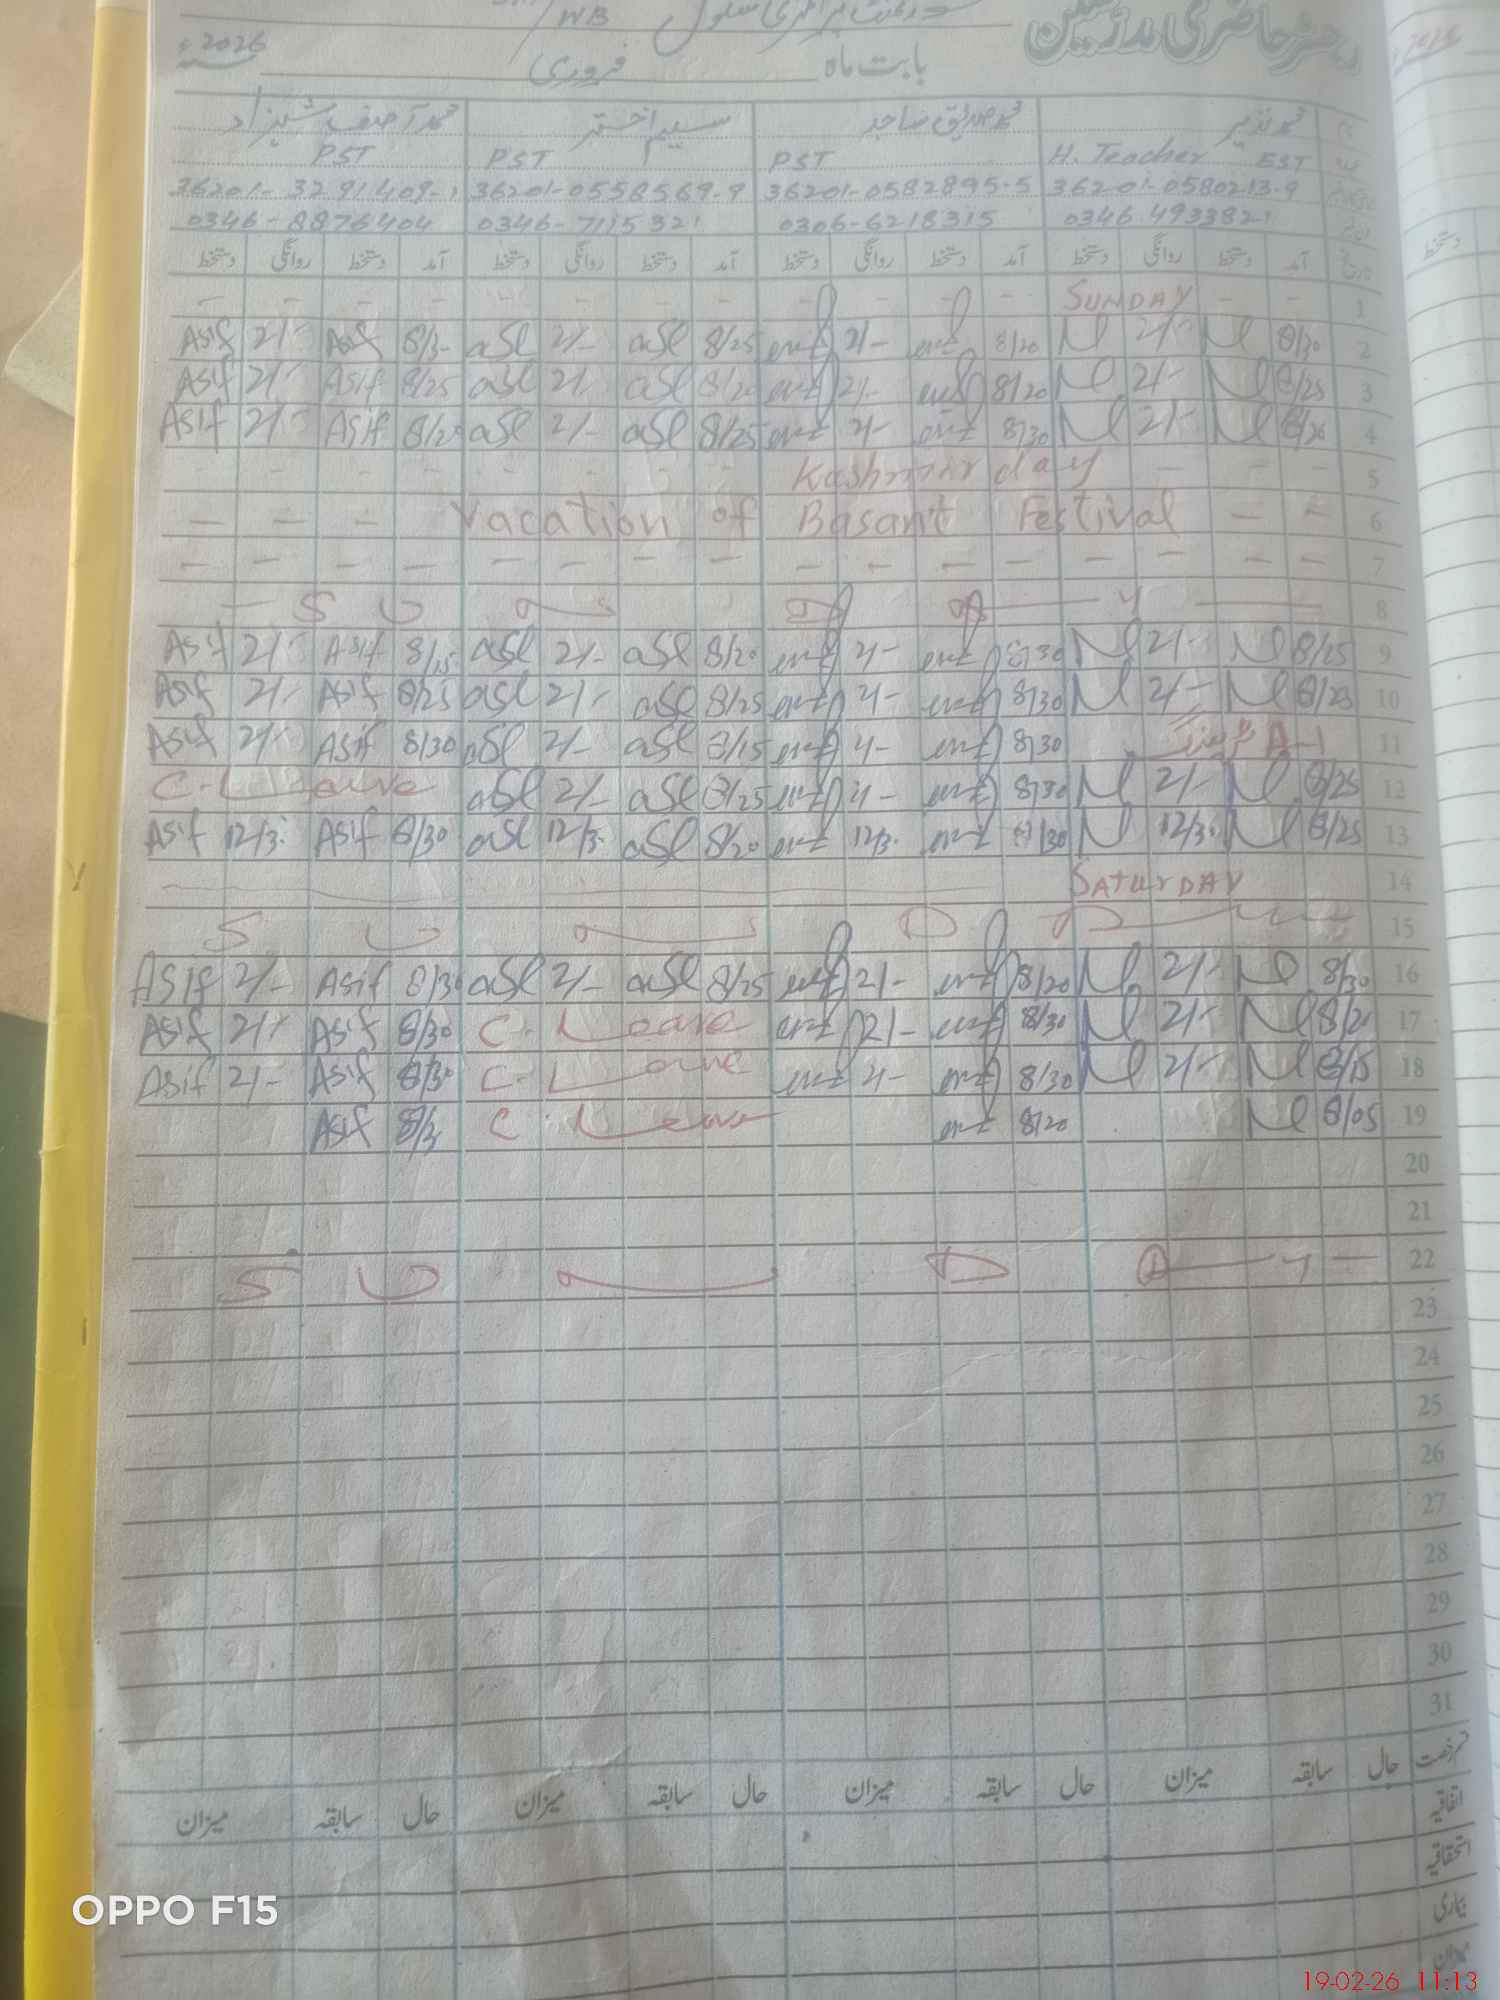 رجسٹر حاضری مدرسین
گورنمنٹ پرائمری سکول WB
بابت ماہ فروری 2026ء
محمد نذیر محمد صدیق ساجد نسیم اختر محمد آصف شہزاد
PST PST PST H. Teacher EST
36201-3291409-1 36201-0558569-9 36201-0582895-5 36201-0580213-9
0346-8876404 0346-7115321 0306-6218315 0346 4933821
تاریخ آمد دستخط روانگی دستخط آمد دستخط روانگی دستخط آمد دستخط روانگی دستخط آمد دستخط روانگی دستخط
- - - - - - - - - - - SUNDAY - - 1
Asif 2/- Asif 8/3- aSl 2/- aSl 8/25 2/- 8/20 N 2/- N 8/30 2
Asif 2/- Asif 8/25 aSl 2/- aSl 8/20 2/- 8/20 N 2/- N 8/25 3
Asif 2/- Asif 8/20 aSl 2/- aSl 8/25 2/- 8/30 N 2/- N 8/20 4
- - - - - - - - Kashmir day - - - 5
- - - Vacation of Basant Festival - - 6
- - - - - - - - - - - - - - - 7
S U N D A Y 8
Asif 2/- Asif 8/25 aSl 2/- aSl 8/20 2/- 8/30 N 2/- N 8/25 9
Asif 2/- Asif 8/25 aSl 2/- aSl 8/25 2/- 8/30 N 2/- N 8/25 10
Asif 2/- Asif 8/30 aSl 2/- aSl 8/15 2/- 8/30 A-1 11
C-Leave aSl 2/- aSl 8/25 2/- 8/30 N 2/- N 8/25 12
Asif 12/3- Asif 8/30 aSl 12/3- aSl 8/20 12/3- 8/30 N 12/3- N 8/25 13
SATURDAY 14
S U N D A Y 15
Asif 2/- Asif 8/30 aSl 2/- aSl 8/25 2/- 8/20 N 2/- N 8/30 16
Asif 2/- Asif 8/30 C-Leave 2/- 8/30 N 2/- N 8/20 17
Asif 2/- Asif 8/30 C-Leave 2/- 8/30 N 2/- N 8/15 18
Asif C-Leave 8/20 N 8/05 19
20
21
S U N D A Y 22
23
24
25
26
27
28
29
30
31
قسم رخصت حال سابقہ میزان حال سابقہ میزان حال سابقہ میزان حال سابقہ میزان
اتفاقیہ
استحقاقیہ
بیماری
میزان
دستخط
OPPO F15
19-02-26 11:13